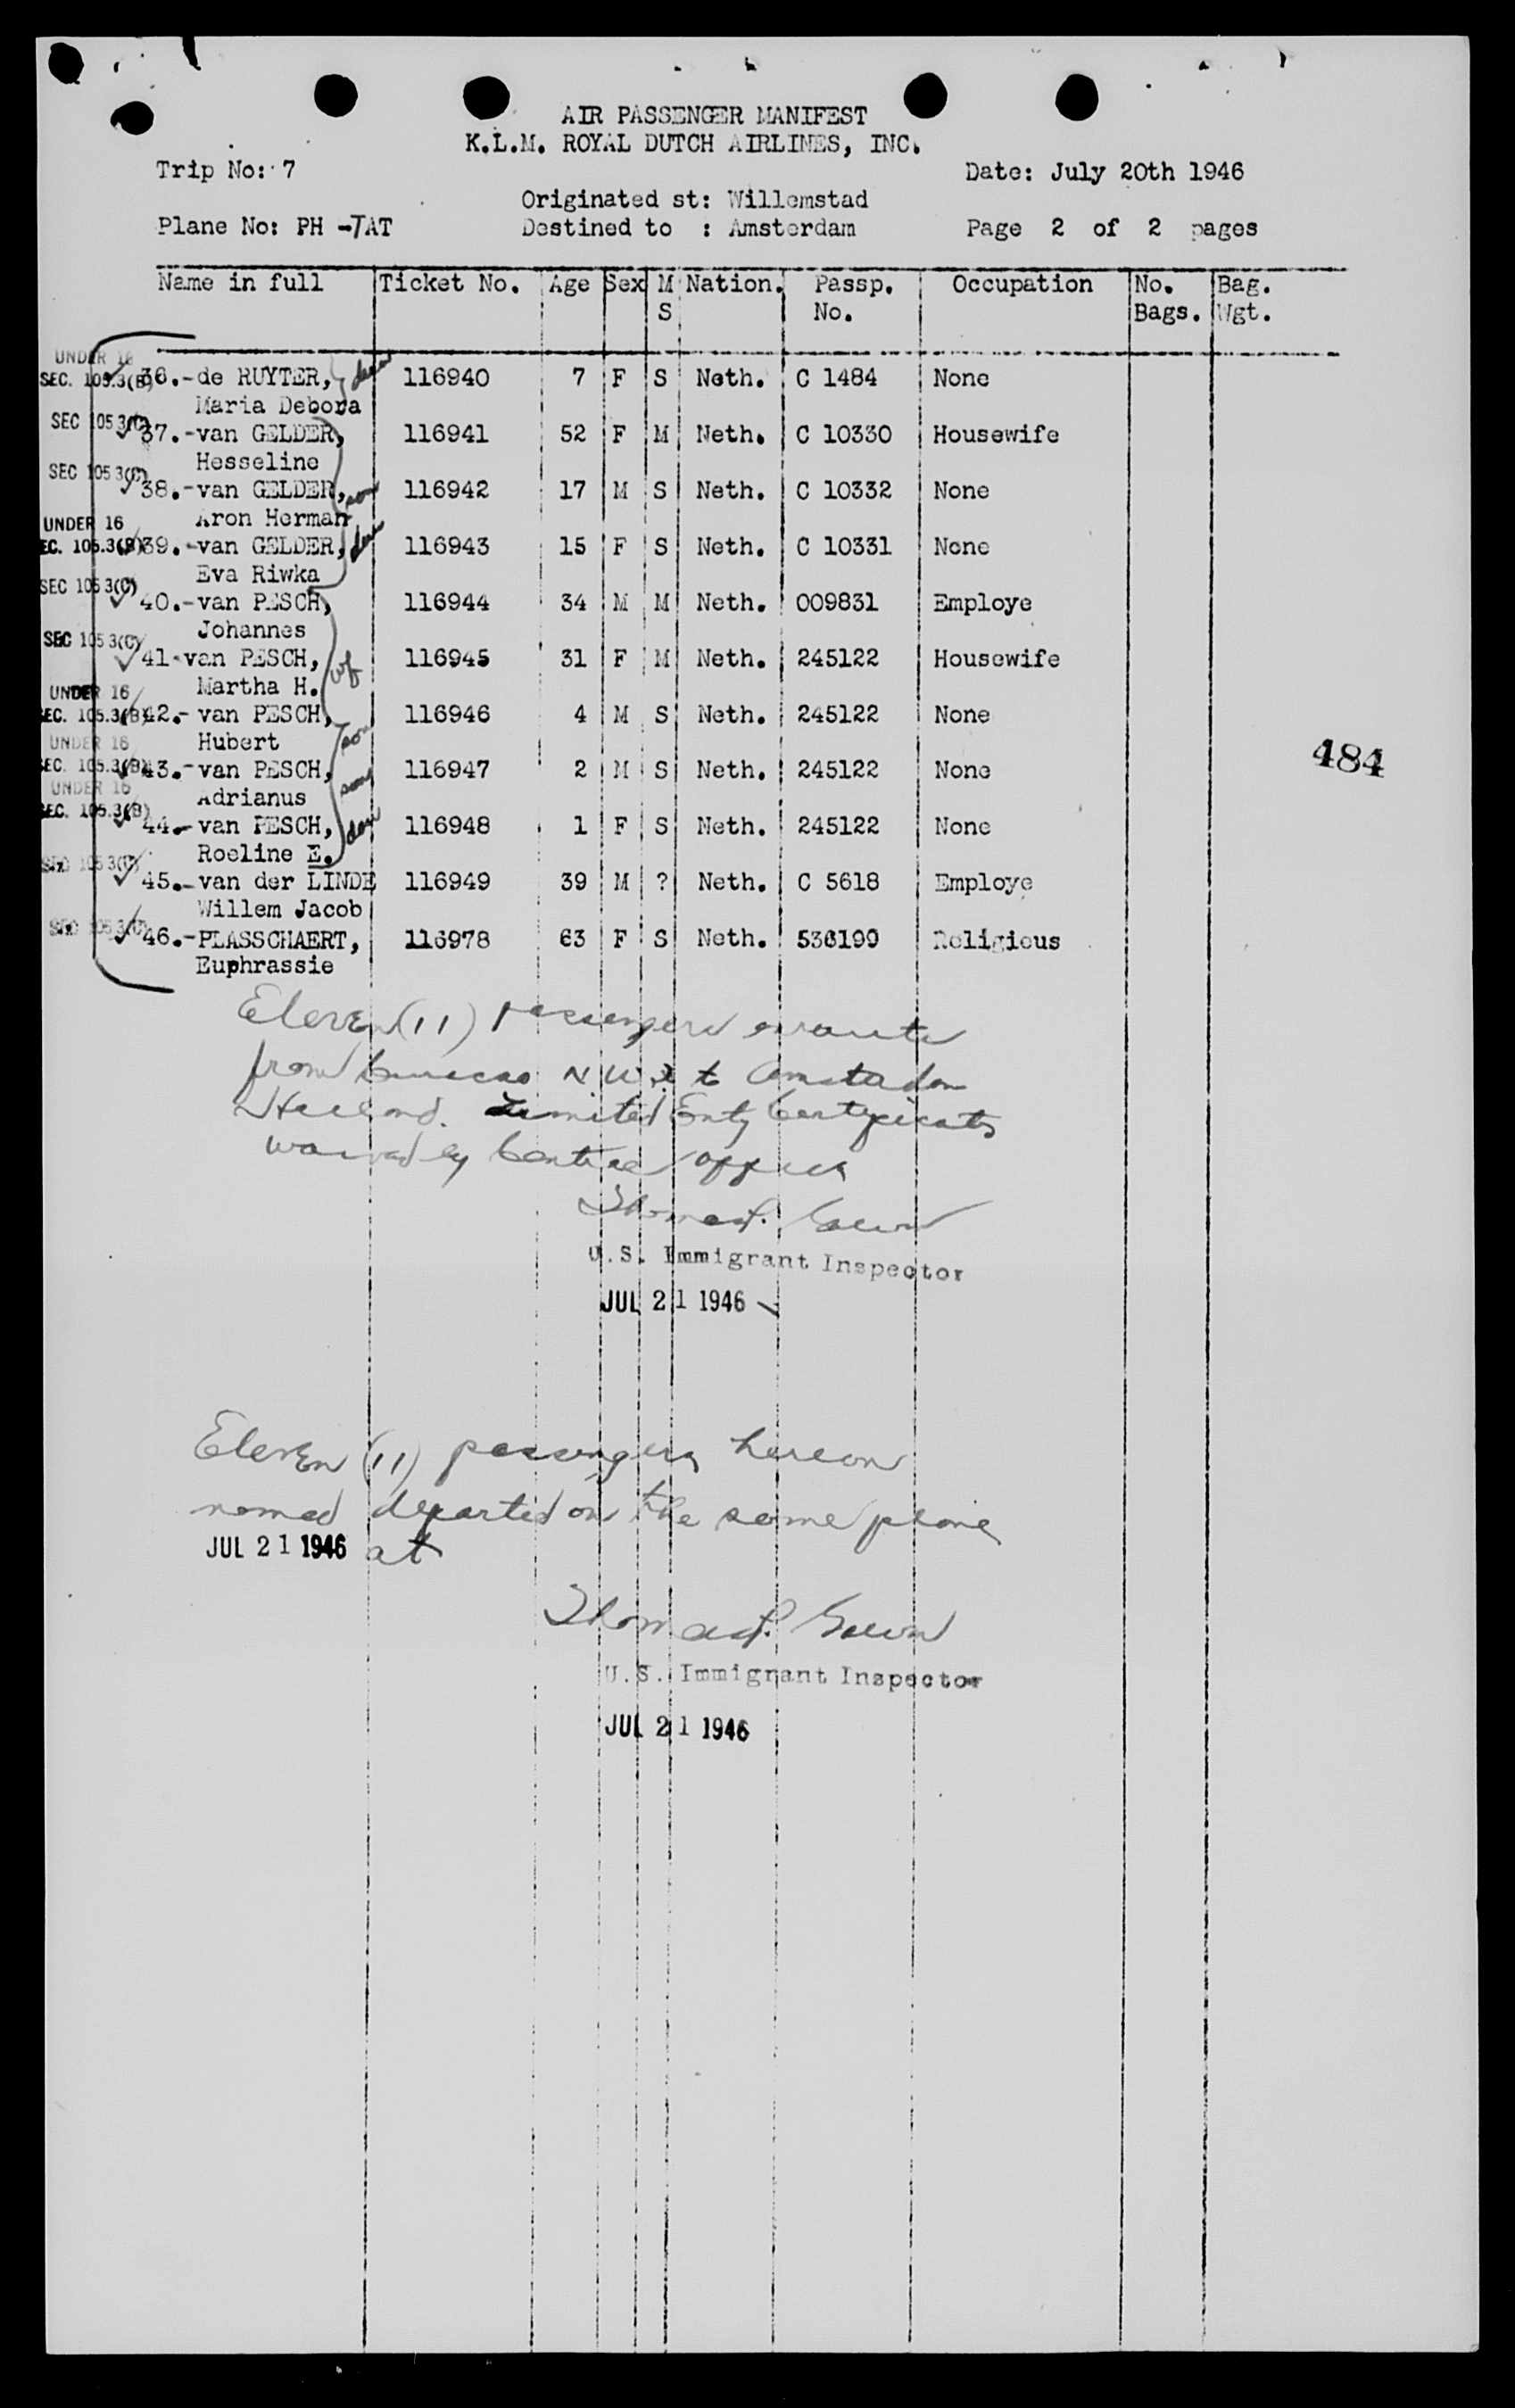 AIR PASSENGER MANIFEST
K.L.M. ROYAL DUTCH AIRLINES, INC.
Trip No: 7 Date: July 20th 1946
Originated st: Willemstad
Plane No: PH -TAT Destined to : Amsterdam Page 2 of 2 pages
Name in full Ticket No. Age Sex M Nation. Passp. Occupation No. Bag.
S No. Bags. Wgt.
UNDER 16
SEC. 105.3(B) 36.-de RUYTER, 116940 7 F S Neth. C 1484 None
Maria Debora
SEC 105 3(C) 37.-van GELDER, 116941 52 F M Neth. C 10330 Housewife
Hesseline
SEC 105 3(C) 38.-van GELDER, son 116942 17 M S Neth. C 10332 None
Aron Herman
UNDER 16
EC. 105.3(B) 39.-van GELDER, 116943 15 F S Neth. C 10331 None
Eva Riwka
SEC 105 3(C) 40.-van PESCH, 116944 34 M M Neth. 009831 Employe
Johannes
SEC 105 3(C) 41-van PESCH, wf 116945 31 F M Neth. 245122 Housewife
Martha H.
UNDER 16
EC. 105.3(B) 42.- van PESCH, son 116946 4 M S Neth. 245122 None
Hubert
UNDER 16
EC. 105.3(B) 43.-van PESCH, son 116947 2 M S Neth. 245122 None
Adrianus
UNDER 16
EC. 105.3(B) 44.-van PESCH, dau 116948 1 F S Neth. 245122 None
Roeline E.
SEC 105 3(C) 45.-van der LINDE 116949 39 M ? Neth. C 5618 Employe
Willem Jacob
SEC 105 3(C) 46.-PLASSCHAERT, 116978 63 F S Neth. 536199 Religious
Euphrassie
484
Eleven (11) passengers enroute
from Curacao N W I to Amsterdam
Holland. Limited Entry Certificates
waived by Central Office
Thomas
U.S. Immigrant Inspector
JUL 21 1946
Eleven (11) passengers hereon
named departed on the same plane
JUL 21 1946 at
Thomas
U.S. Immigrant Inspector
JUL 21 1946